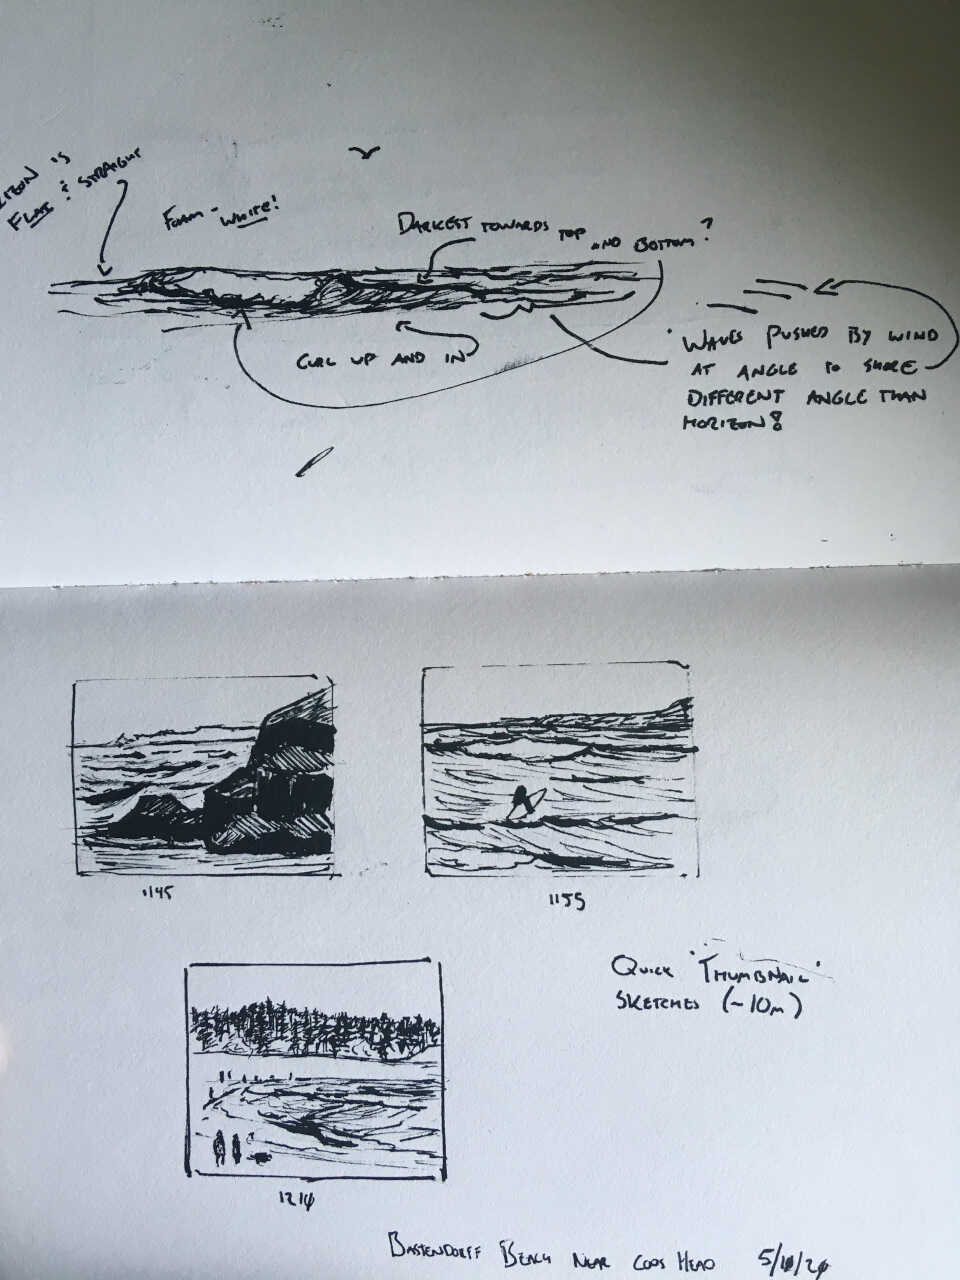 IS
FLAT & STRAIGHT
FOAM - WHITE!
DARKEST TOWARDS TOP AND BOTTOM?
CURL UP AND IN
WAVES PUSHED BY WIND
AT ANGLE TO SHORE
DIFFERENT ANGLE THAN
HORIZON!
1145
1155
QUICK "THUMBNAIL"
SKETCHES (~10m)
1210
BASTENDORFF BEACH NEAR COOS HEAD 5/10/20